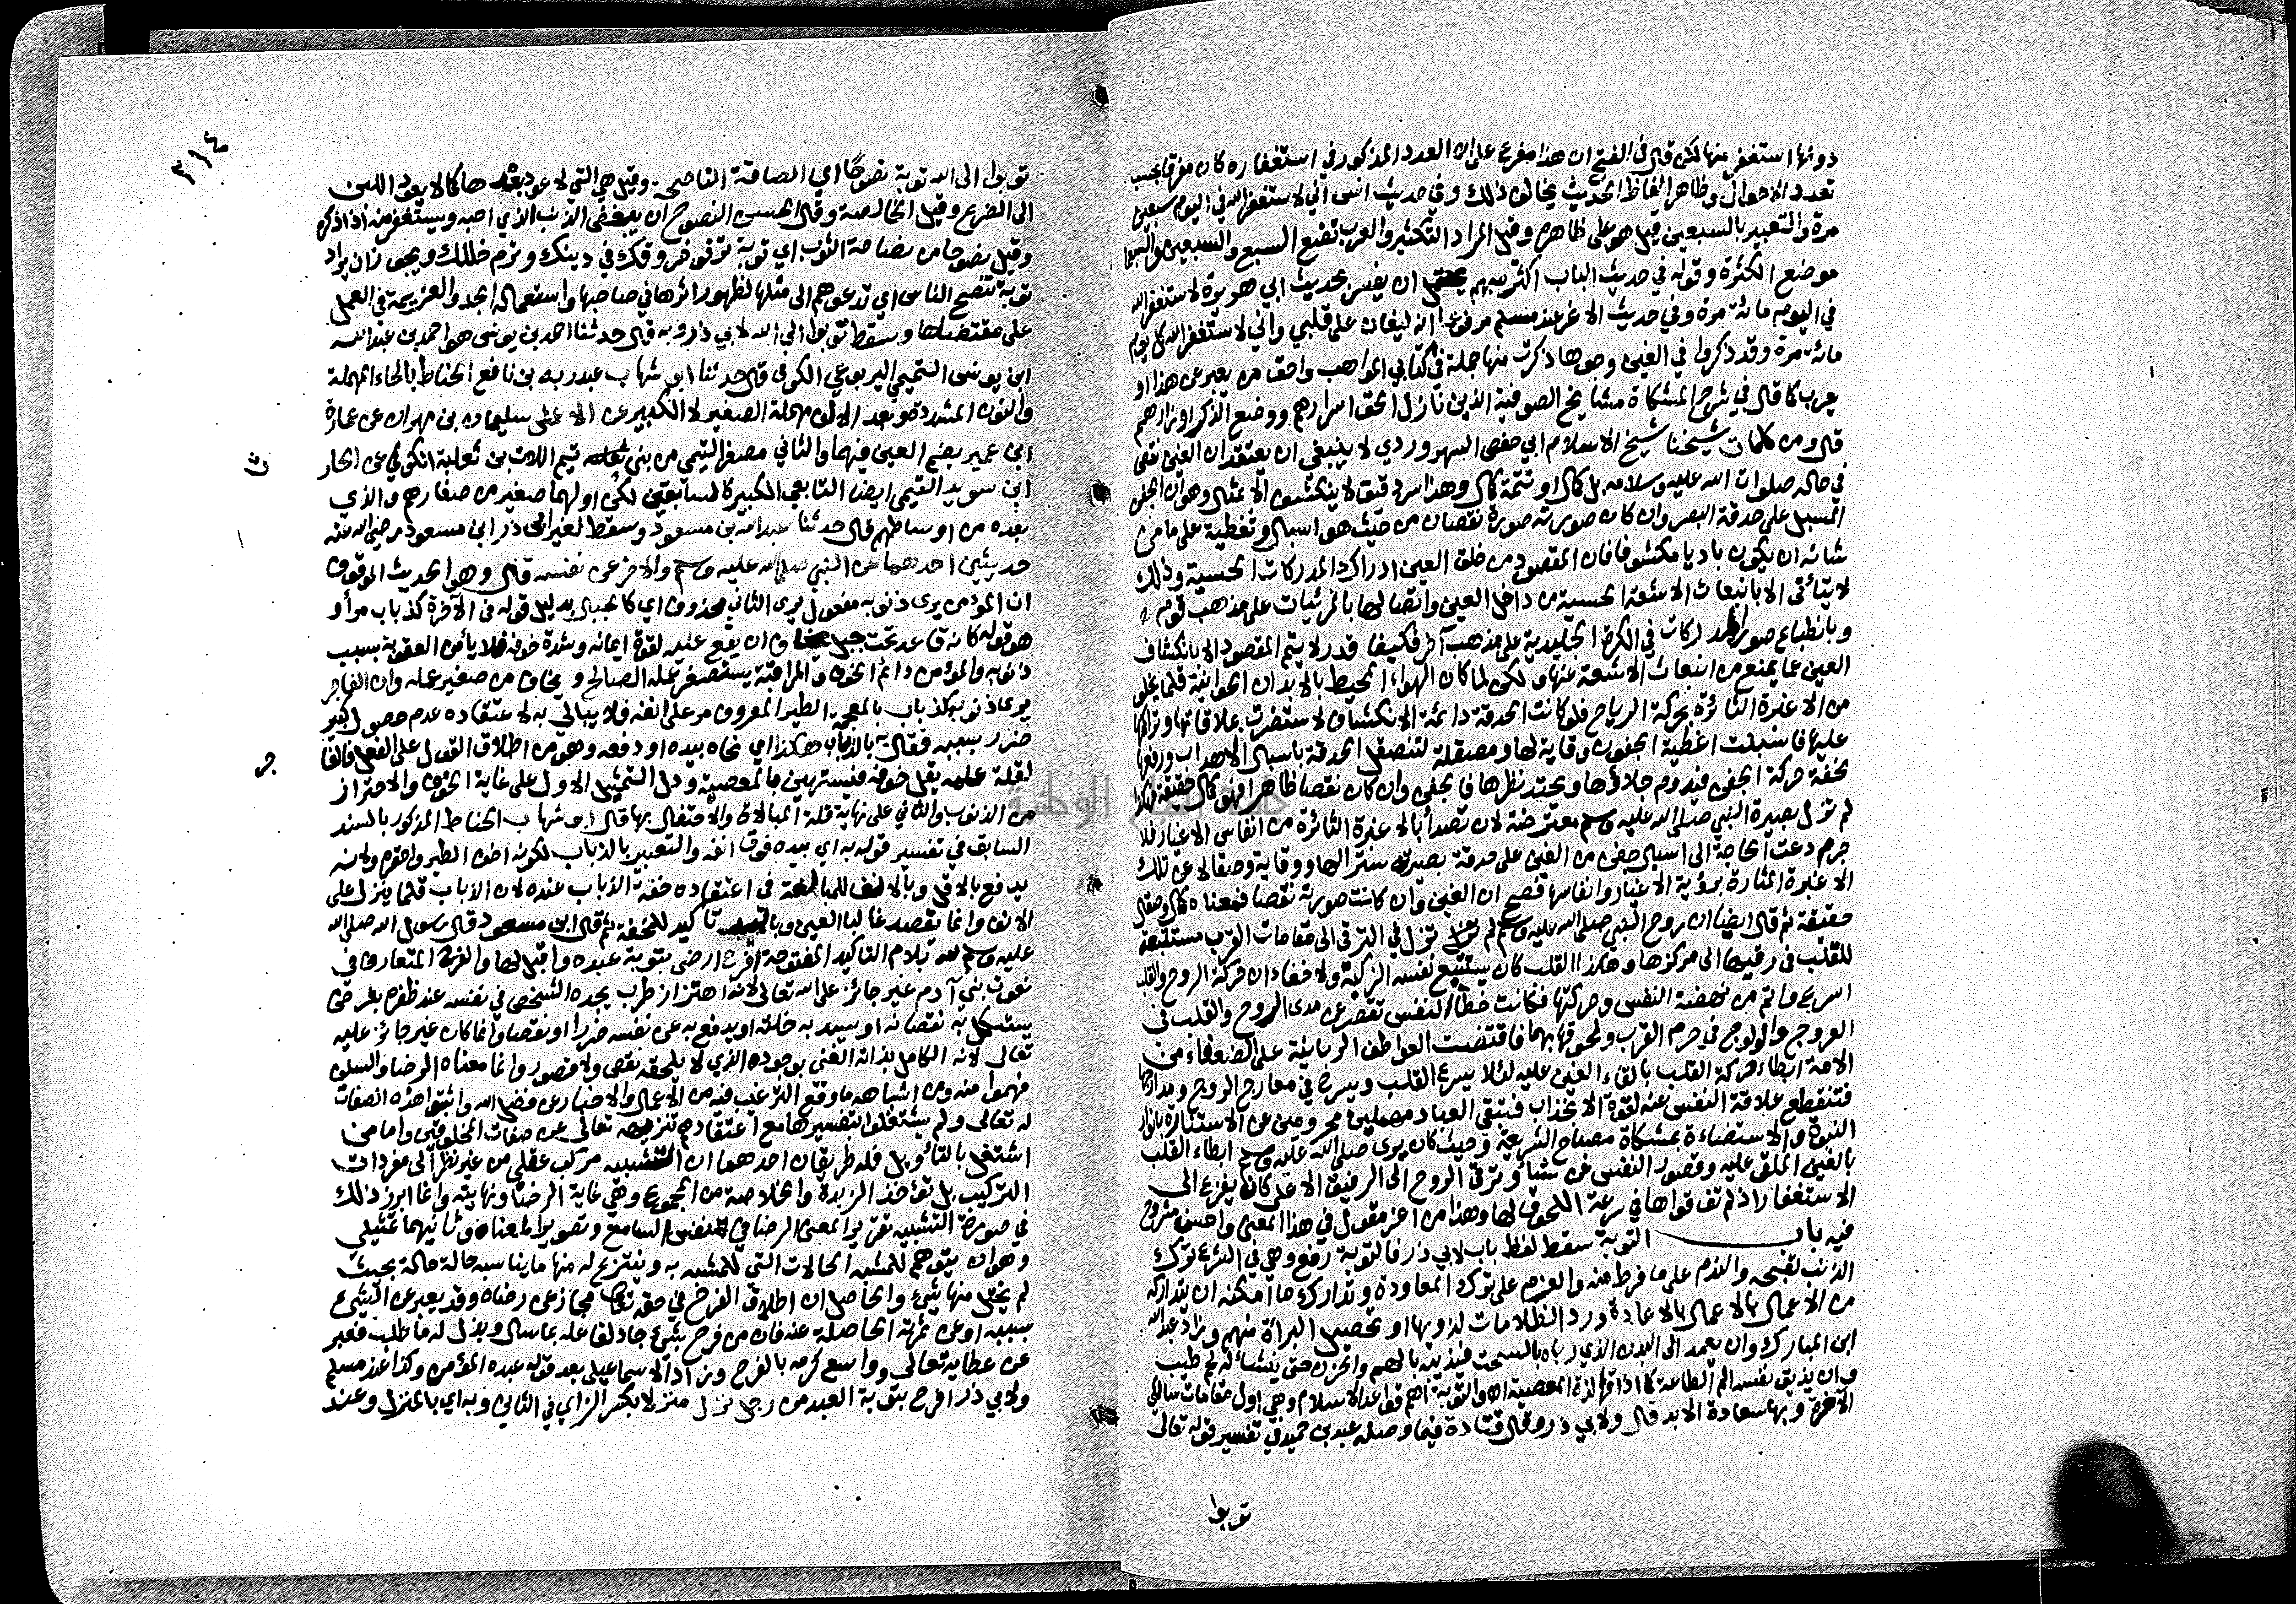 دونها استغفر منها لكن قال في الفتح ان هذا مفرع على ان العدد المذكور في استغفاره كان مفرقا بحسب
تعدد الاحوال وظاهر الفاظ الحديث يخالف ذلك وفي حديث انس اني لاستغفر الله في اليوم سبعين
مرة والتعبير بالسبعين قيل هو على ظاهره وقيل المراد التكثير والعرب تضع السبع والسبعين والسبعماية
موضع الكثرة وقوله في حديث الباب اكثر مبهم يحتمل ان يفسر بحديث ابي هريرة لاستغفر الله
في اليوم مائة مرة وفي حديث الاغر عند مسلم مرفوعا انه ليغان على قلبي واني لاستغفر الله كل يوم
مائة مرة وقد ذكروا في الغين وجوها ذكرت منها جملة في كتابي المواهب واحق من يعبر عن هذا او
يعرب كما قال في شرح المشكاة مشايخ الصوفية الذين نازل الحق اسرارهم ووضع الذكر اوزارهم
قال ومن كلمات شيخنا شيخ الاسلام ابي حفص السهروردي لا ينبغي ان يعتقد ان الغين نقص
في حاله صلوات الله عليه وسلامه بل كمال او تتمة كمال وهذا سر دقيق لا ينكشف الا بمثال وهو ان الجفن
المسبل على حدقة البصر وان كان صورته صورة نقصان من حيث هو اسبال وتغطية على ما من
شانه ان يكون باديا مكشوفا فان المقصود من خلق العين ادراك المدركات الحسية وذلك
لا يتاتى الا بانبعاث الاشعة الحسية من داخل العين واتصالها بالمرئيات على مذهب قوم
وبانطباع صور المدركات في الكرة الجليدية على مذهب آخر فكيفما قدر لا يتم المقصود الا بانكشاف
العين عما يمنع من انبعاث الاشعة عنها ولكن لما كان الهواء المحيط بالابدان الحيوانية قلما يخلو
من الاغبرة الثائرة بحركة الرياح فلو كانت الحدقة دائمة الانكشاف لاستضرت بملاقاتها وتراكمها
عليها فاسبلت اغطية الجفون وقاية لها ومصقلة لتنصقل الحدقة باسبال الاهداب ورفعها
بخفة حركة الجفن فيدوم جلاؤها ويحتد نظرها فالجفن وان كان نقصا ظاهرا فهو كمال حقيقة فهكذا
لم تزل بصيرة النبي صلى الله عليه وسلم معترضة لان تصدأ بالاغبرة الثائرة من انفاس الاغيار فلا
جرم دعت الحاجة الى اسبال جفن من الغين على حدقة بصيرته سترا لها ووقاية وصقالا عن تلك
الاغبرة المثارة برؤية الاغيار وانفاسها فصح ان الغين وان كانت صورته نقصا فمعناه كمال وصقال
حقيقة ثم قال ايضا ان روح النبي صلى الله عليه وسلم لم تزل في الترقي الى مقامات القرب مستتبعة
للقلب في رقيها الى مركزها وهكذا القلب كان يستتبع نفسه الزكية ولا خفاء ان حركة الروح والقلب
اسرع واتم من نهضة النفس وحركتها فكانت خطا النفس تقصر عن مدى الروح والقلب في
العروج والولوج في حرم القرب ولحوقها بهما فاقتضت العواطف الربانية على الضعفاء من
الامة ابطاء حركة القلب بالقاء الغين عليه لئلا يسرع القلب ويسرح في معارج الروح ومدارجها
فتنقطع علاقة النفس عنه لقوة الانجذاب فتبقى العباد مهملين محرومين عن الاستنارة بانوار
النبوة والاستضاءة بمشكاة مصباح الشريعة وحيث كان يرى صلى الله عليه وسلم ابطاء القلب
بالغين الملقى عليه وقصور النفس عن شأو ترقي الروح الى الرفيق الاعلى كان يفزع الى
الاستغفار اذ لم تف قواها في سرعة اللحوق لها وهذا من اعز مقول في هذا المعنى واحسن مشروح
فيه باب التوبة سقط لفظ باب لابي ذر فالتوبة رفع وهي في الشرع ترك
الذنب لقبحه والندم على ما فرط منه والعزم على ترك المعاودة وتدارك ما امكنه ان يتداركه
من الاعمال بالاعمال بالاعادة ورد الظلامات لذويها او تحصيل البراة منهم وزاد عبد الله
ابن المبارك وان يعمد الى البدن الذي رباه بالسحت فيذيبه بالهم والحزن حتى ينشأ له لحم طيب
وان يذيق نفسه الم الطاعة كما اذاقها لذة المعصية اهـ والتوبة اهم قواعد الاسلام وهي اول مقامات سالكي
الآخرة وبها سعادة الابد قال ولابي ذر وقال قتادة فيما وصله عبد بن حميد في تفسير قوله تعالى
توبوا
٣١٤
توبوا الى الله توبة نصوحا اي الصادقة الناصحة وقيل هي التي لا عود بعدها كما لا يعود اللبن
الى الضرع وقيل الخالصة وقال الحسن النصوح ان يبغض الذنب الذي احبه ويستغفر منه اذا ذكره
وقيل نصوحا من نصاحة الثوب اي توبة ترفو خروقك في دينك وترم خللك ويجوز ان يراد
توبة تنصح الناس اي تدعوهم الى مثلها لظهور اثرها في صاحبها واستعماله الجد والعزيمة في العمل
على مقتضياتها وسقط توبوا الى الله لابي ذر وبه قال حدثنا احمد بن يونس هو احمد بن عبد الله
ابن يونس التميمي اليربوعي الكوفي قال حدثنا ابو شهاب عبد ربه بن نافع الحناط بالحاء المهملة
والنون المشددة وبعد الالف مهملة الصغير لا الكبير عن الاعمش سليمان بن مهران عن عمارة
ابن عمير بضم العين فيهما والثاني مصغر التيمي من بني تيم اللات بن ثعلبة الكوفي عن الحار
ث
ابن سويد التيمي ايضا التابعي الكبير كالسابقين لكن اولهما صغير من صغارهم والذي
بعده من اوساطهم قال حدثنا عبد الله بن مسعود وسقط لغير ابي ذر ابن مسعود رضي الله عنه
حديثين احدهما عن النبي صلى الله عليه وسلم والاخر عن نفسه قال وهو الحديث الموقوف
ان المؤمن يرى ذنوبه مفعول يرى الثاني محذوف اي كالجبال بدليل قوله في الآخرة كذباب مر او
هو قوله كانه قاعد تحت جبل يخاف ان يقع عليه لقوة ايمانه وشدة خوفه فلا يأمن العقوبة بسبب
ذنوبه والمؤمن دائم الخوف والمراقبة يستصغر عمله الصالح ويخاف من صغير عمله وان الفاجر
يرى ذنوبه كذباب بالمعجمة الطير المعروف مر على انفه فلا يبالي به لاعتقاده عدم حصول كبير
ضرر بسببه فقال به بالذباب هكذا اي نحاه بيده او دفعه وهو من اطلاق القول على الفعل فالفا
جر
لقلة علمه يقل خوفه فيستهين بالمعصية ودل التمثيل الاول على غاية الخوف والاحتراز
من الذنوب والثاني على نهاية قلة المبالاة والاحتفال بها قال ابو شهاب الحناط المذكور بالسند
السابق في تفسير قوله به اي بيده فوق انفه والتعبير بالذباب لكونه اخف الطير واحقره ولانه
يدفع بالاقل وبالانف للمبالغة في اعتقاده خفة الذباب عنده لان الذباب قلما ينزل على
الانف وانما يقصد غالبا العين وباليد تأكيد للخفة ثم قال ابن مسعود قال رسول الله صلى الله
عليه وسلم لله بلام التاكيد المفتوحة افرح ارضى بتوبة عبده واقبل لها والفرح المتعارف في
نعوت بني آدم غير جائز على الله تعالى لانه اهتزاز طرب يجده الشخص في نفسه عند ظفره بغرض
يستكمل به نقصانه او يسد به خلته او يدفع به عن نفسه ضررا او نقصا وانما كان غير جائز عليه
تعالى لانه الكامل بذاته الغني بوجوده الذي لا يلحقه نقص ولا قصور وانما معناه الرضا والسلف
فهموا منه ومن اشباهه ما وقع الترغيب فيه من الاعمال والاخبار عن فضل الله واثبتوا هذه الصفات
له تعالى ولم يشتغلوا بتفسيرها مع اعتقادهم تنزيهه تعالى عن صفات المخلوقين واما من
اشتغل بالتأويل فله طريقان احدهما ان التشبيه مركب عقلي من غير نظر الى مفردات
التركيب بل تؤخذ الزبدة والخلاصة من المجموع وهي غاية الرضا ونهايته وانما ابرز ذلك
في صورة التشبيه تقريرا لمعنى الرضا في نفس السامع وتصويرا لمعناه وثانيهما تمثيلي
وهو ان يتوهم للمشبه الحالات التي للمشبه به وينتزع له منها ما يناسبه حالة حالة بحيث
لم يختل منها شيء والحاصل ان اطلاق الفرح في حقه تعالى مجاز عن رضاه وقد يعبر عن الشيء
بسببه او عن ثمرته الحاصلة عنه فان من فرح بشيء جاد لفاعله بما سال وبذل له ما طلب فعبر
عن عطائه تعالى وواسع كرمه بالفرح وزاد الاسماعيلي بعد قوله عبده المؤمن وكذا عند مسلم
ولابي ذر افرح بتوبة العبد من رجل نزل منزلا بكسر الزاي في الثاني وبه اي بالمنزل وعند